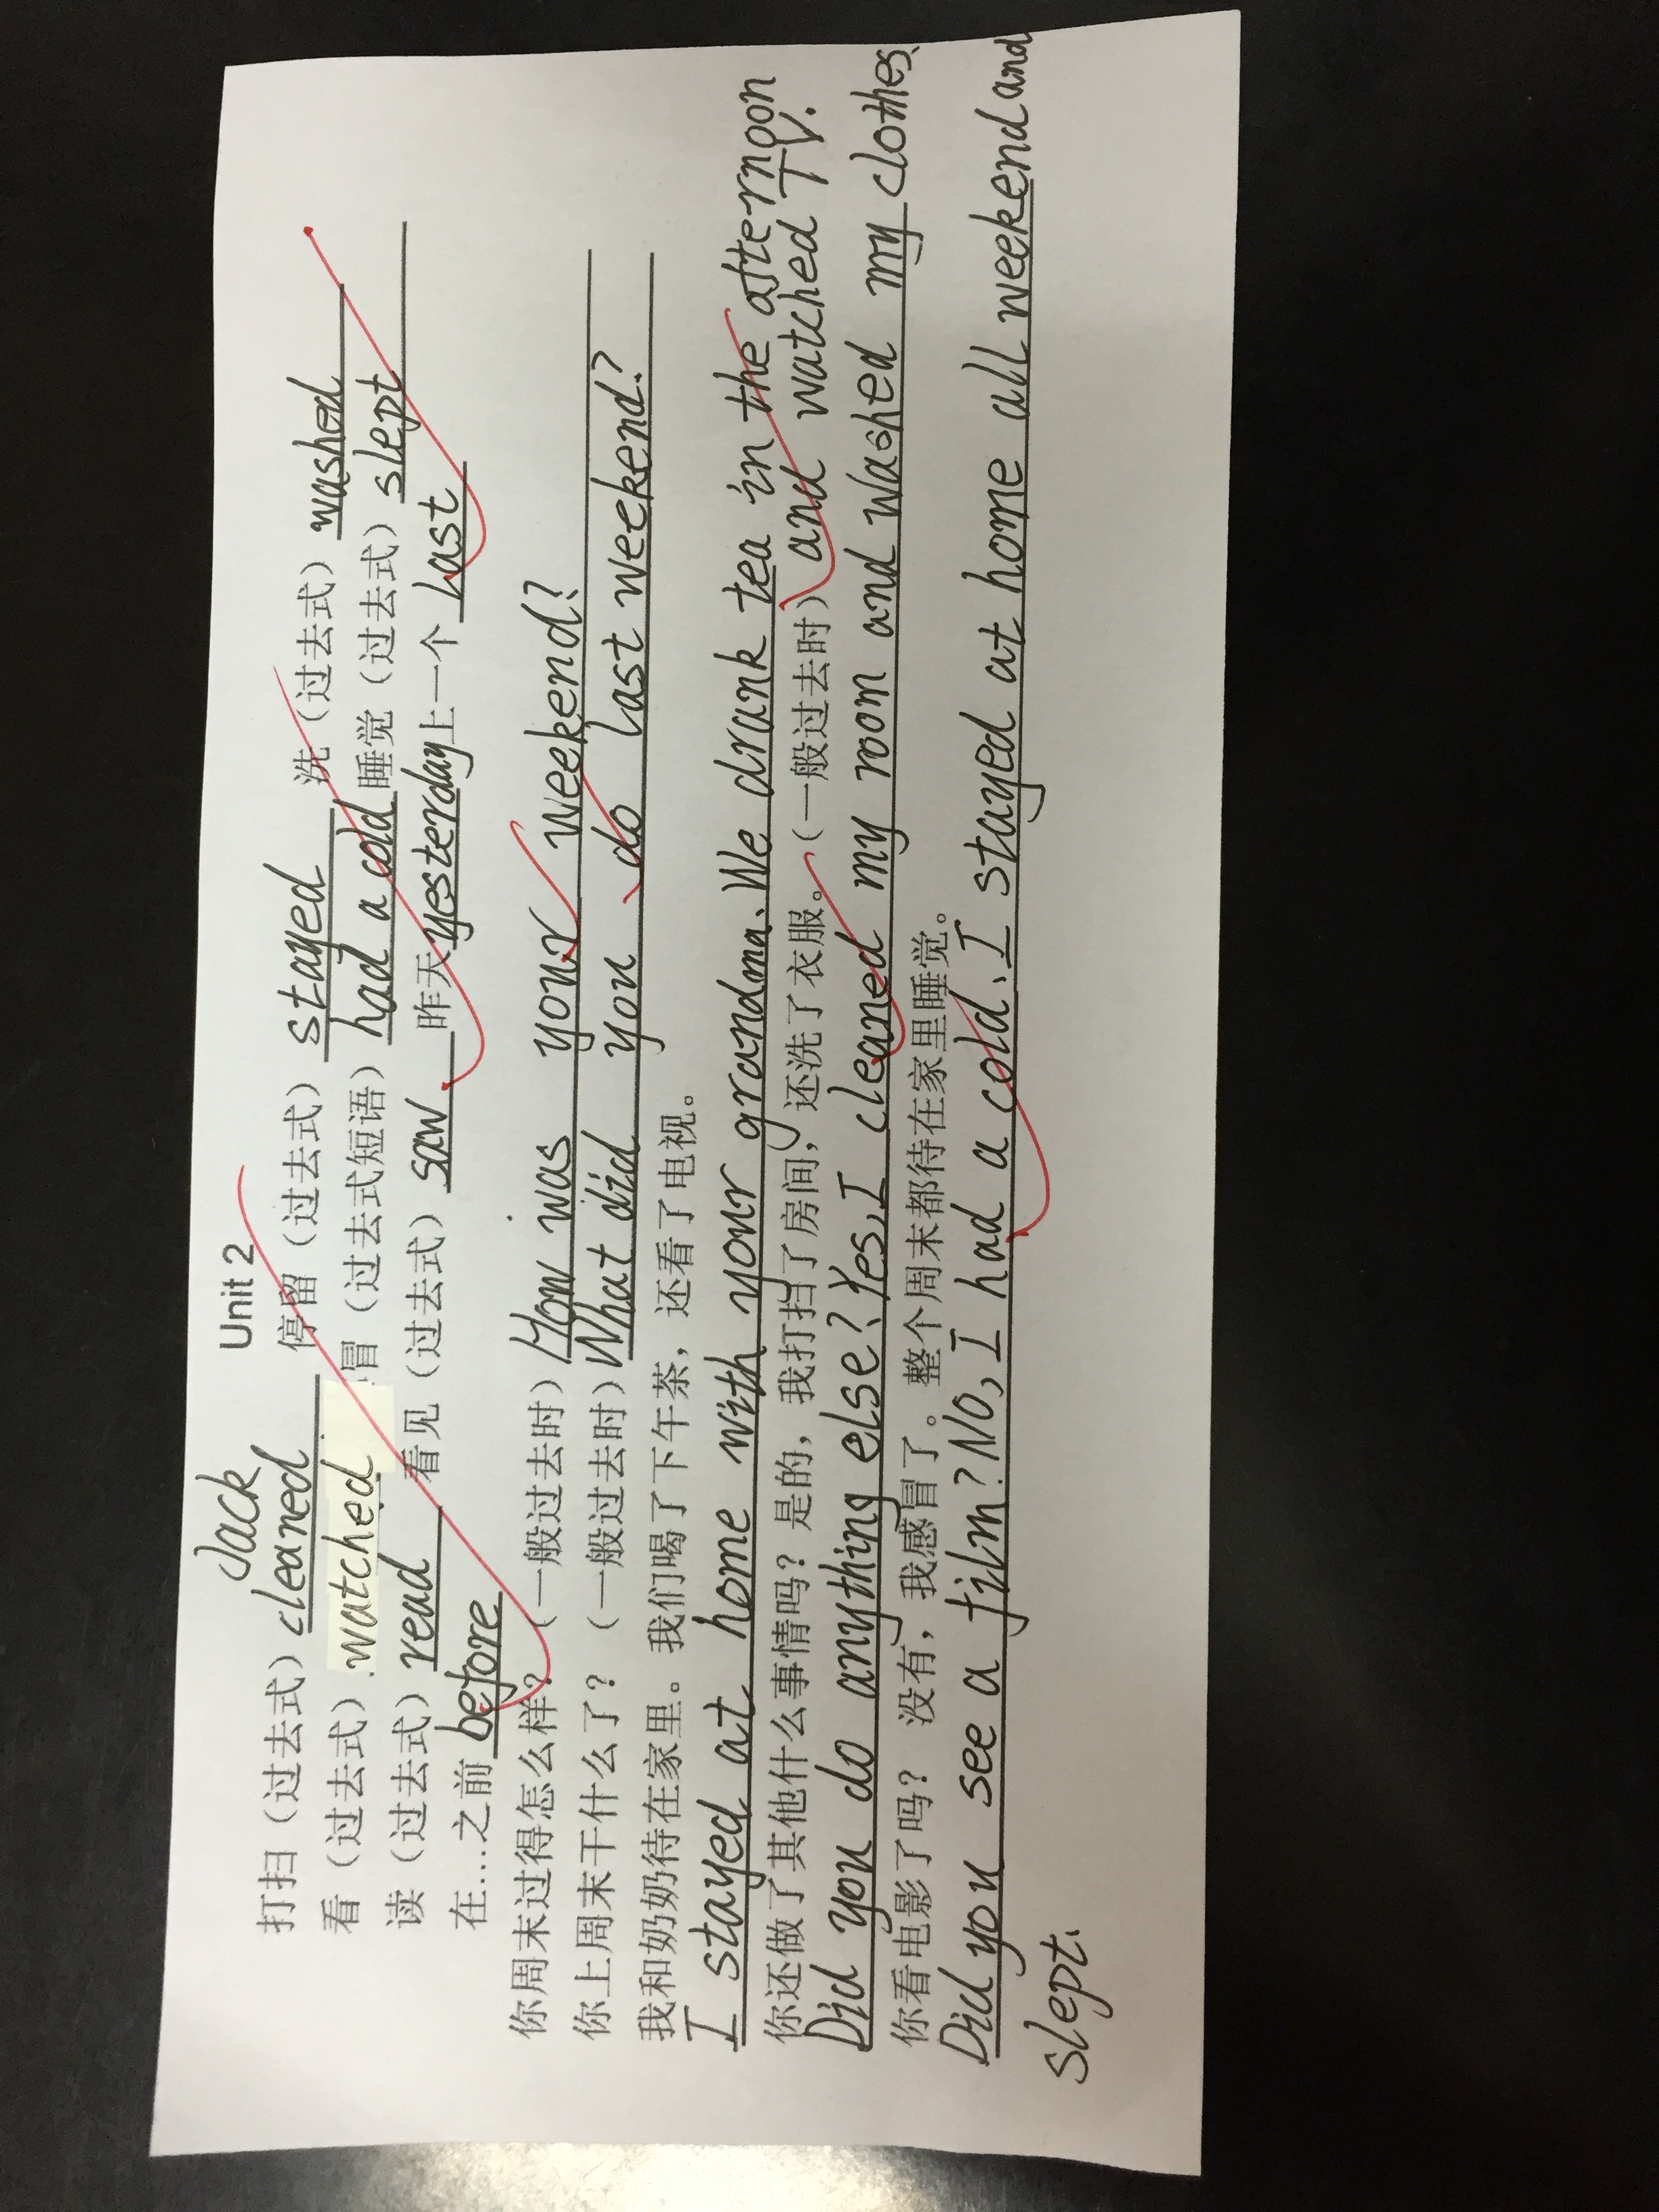 Jack Unit 2
打扫（过去式）cleaned 停留（过去式）stayed 洗（过去式）washed
看（过去式）watched 冒（过去式短语）had a cold 睡觉（过去式）slept
读（过去式）read 看见（过去式）saw 昨天 yesterday 上一个 last
在…之前 before
你周末过得怎么样？（一般过去时）How was your weekend?
你上周末干什么了？（一般过去时）What did you do last weekend?
我和奶奶待在家里。我们喝了下午茶，还看了电视。
I stayed at home with your grandma. We drank tea in the afternoon
你还做了其他什么事情吗？是的，我打扫了房间，还洗了衣服。（一般过去时）and watched TV.
Did you do anything else? Yes, I cleaned my room and washed my clothes.
你看电影了吗？没有，我感冒了。整个周末都待在家里睡觉。
Did you see a film? No, I had a cold. I stayed at home all weekend and
slept.